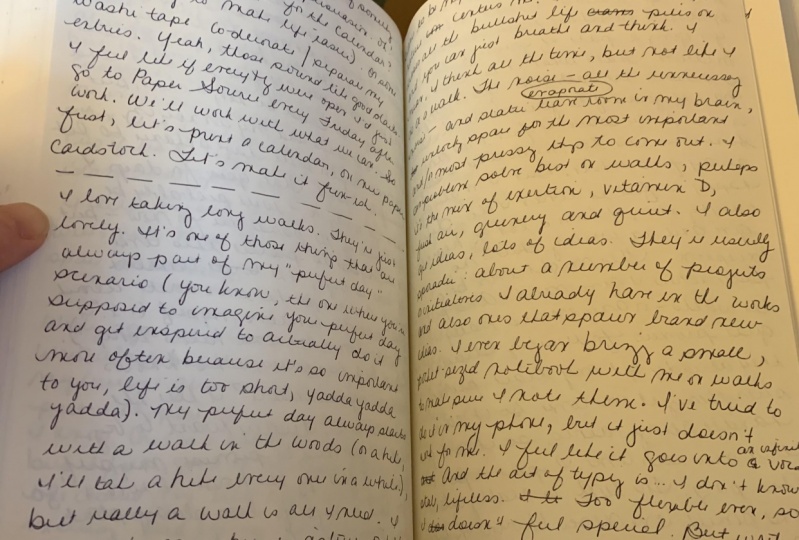 to make life easier). Or allow
washi tape to decorate / separate my
entries. Yeah, those sound like good places
I feel like if everything were open I'd just
go to Paper Source every Friday after
work. We'll work with what we can. So
first, let's print a calendar, on nice paper
cardstock. Let's make it fun-ish.
I love taking long walks. They're just
lovely. It's one of those things that are
always part of my "perfect day"
scenario (you know, the one where you're
supposed to imagine your perfect day
and get inspired to actually do it
more often because it's so important
to you, life is too short, yadda yadda
yadda). My perfect day always starts
with a walk in the woods (or a hike,
I'll take a hike every once in a while),
but really a walk is all I need. I
all the bullshit life piles on
you can just breathe and think. I
I think all the time, but not like I
a walk. The noise - all the unnecessary
- and static evaporate in my brain,
unlocking space for the most important
and/or most pressing things to come out. I
problem solve best on walks, perhaps
it's the mix of exertion, vitamin D,
fresh air, greenery and quiet. I also
get ideas, lots of ideas. They're usually
sporadic: about a number of projects
or initiatives I already have in the works
and also ones that spawn brand new
ideas. I even began bringing a small,
pocket-sized notebook with me on walks
to make sure I note them. I've tried to
do it in my phone, but it just doesn't
work for me. I feel like it goes into a void
And the act of typing is... I don't know
lifeless. Too flexible even, so
it doesn't feel special. But